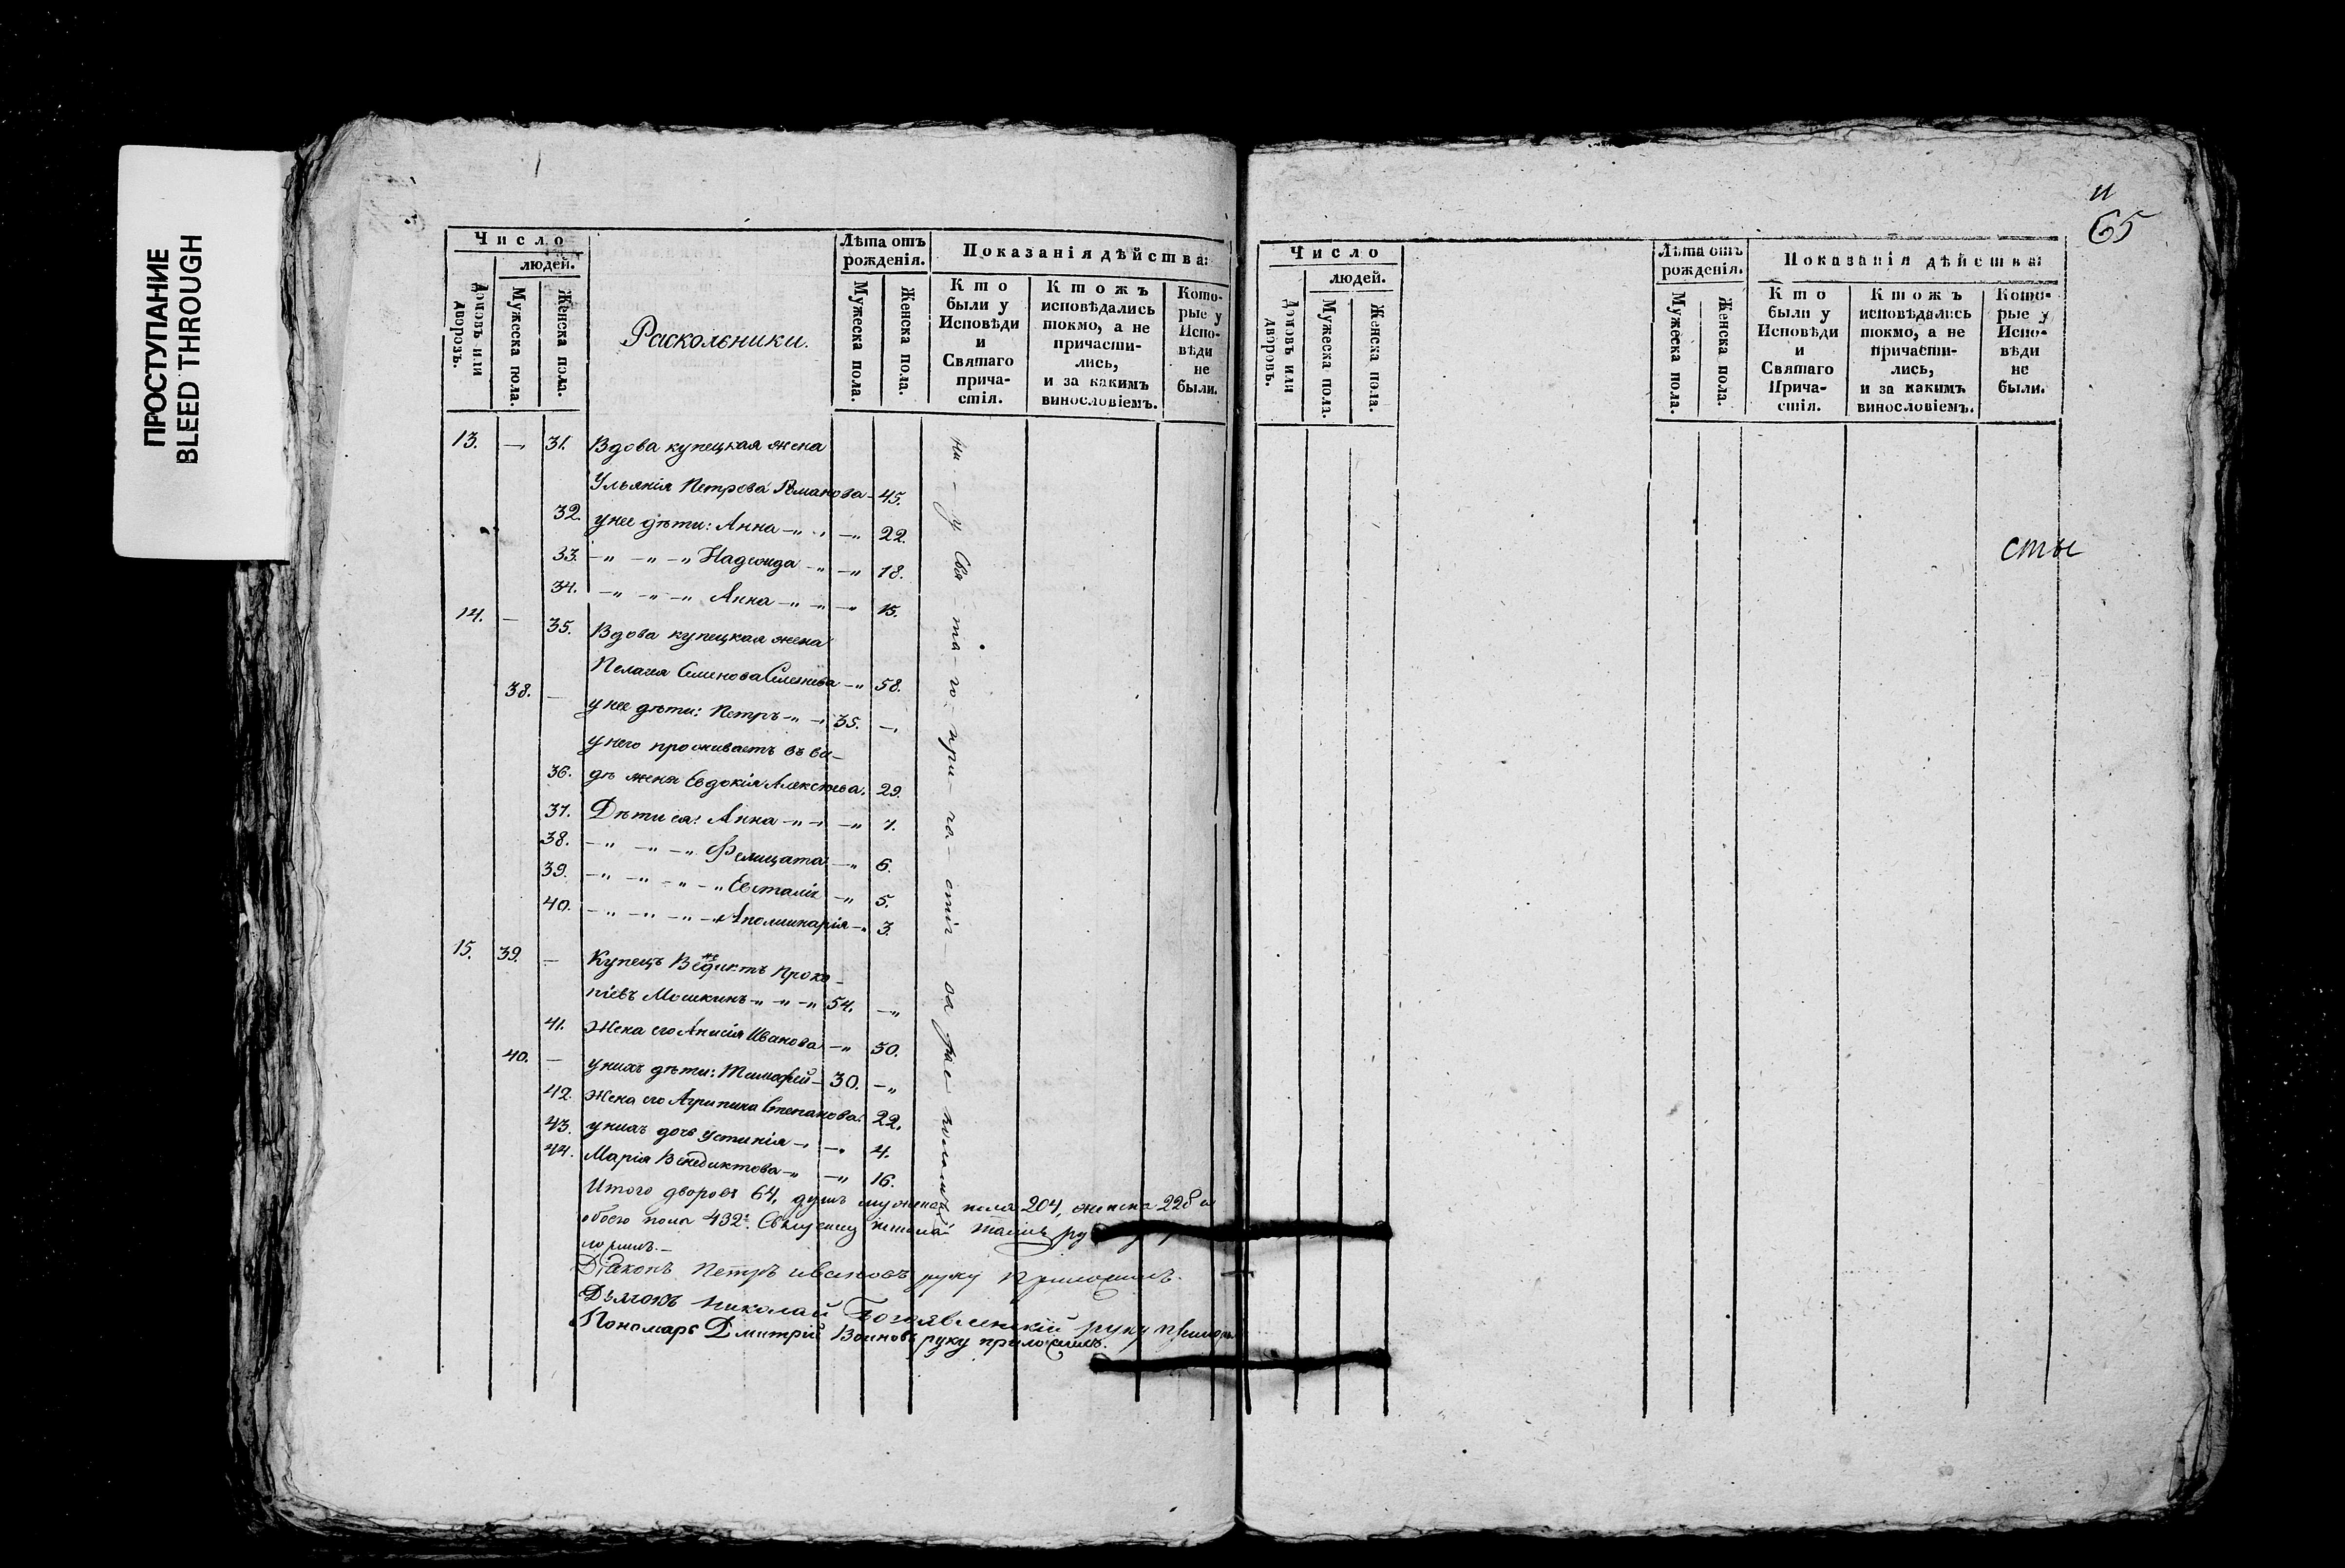 ПРОСТУПАНИЕ
BLEED THROUGH
Число
людей.
Домовъ или дворовъ.
Мужеска пола.
Женска пола.
Раскольники.
Лѣта отъ рожденія.
Мужеска пола.
Женска пола.
Показанія дѣйства:
Кто были у Исповѣди и Святаго прича-стія.
Ктожъ исповѣдались токмо, а не причасти-лись, и за какимъ винословіемъ.
Кото-рые у Испо-вѣди не были.
13. — 31. Вдова купецкая жена
Ульянія Петрова Романова - 45.
32. у нее дѣти: Анна -„ -„ 22.
33. -„ -„ -„ Надежда -„ -„ 18.
34. -„ -„ -„ Анна -„ -„ -„ 15.
14. — 35. Вдова купецкая жена
Пелагея Семенова -„ 58.
38. — у нее дѣти: Петръ -„ - 35. —
у него проживаетъ въ ви-
36. дѣ жены Евдокія Алексѣева. 29.
37. Дѣти ея: Анна -„ -„ -„ 7.
38. -„ -„ -„ Фелицата -„ 6.
39. -„ -„ -„ -„ Евсталія -„ 5.
40. -„ -„ -„ -„ Аполинарія -„ 3.
15. 39. — Купецъ Венедиктъ Проко-
піевъ Мошкинъ -„ -„ -„ 54. -„
41. Жена его Анисія Иванова -„ 50.
40. — у нихъ дѣти: Тимофей - 30. -„
42. Жена его Агрипина Степанова. 22.
43. у нихъ дочь Устинія -„ -„ 4.
44. Марія Венедиктова -„ -„ 16.
ни - у Свя - та - го при - ча - стія
Итого дворовъ 64, душъ мужеска пола 204, женска 228 и
обоего пола 432.
ложилъ. —
Діаконъ Петръ Ивановъ руку приложилъ.
Дьячокъ Николай Богоявленскій руку приложилъ
Пономарь Дмитрій Воиновъ руку приложилъ.
65
Число
людей.
Домовъ или дворовъ.
Мужеска пола.
Женска пола.
Лѣта отъ рожденія.
Мужеска пола.
Женска пола.
Показанія дѣйства:
Кто были у Исповѣди и Святаго Прича-стія.
Ктожъ исповѣдались токмо, а не причасти-лись, и за какимъ винословіемъ.
Кото-рые у Испо-вѣди не были.
сты